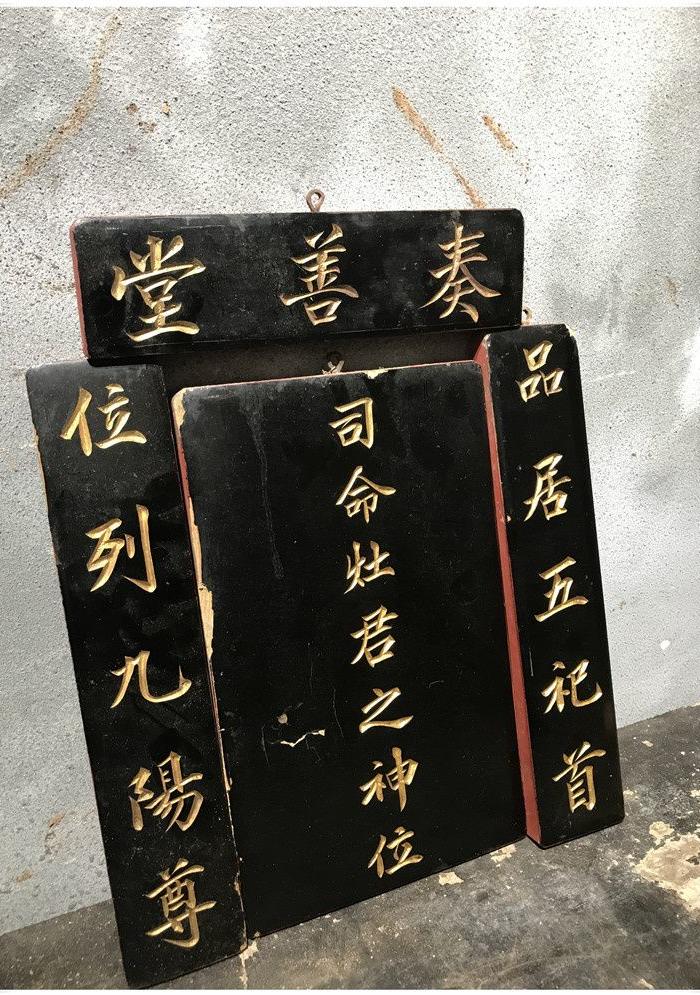 奏善堂
品居五祀首
司命灶君之神位
位列九陽尊